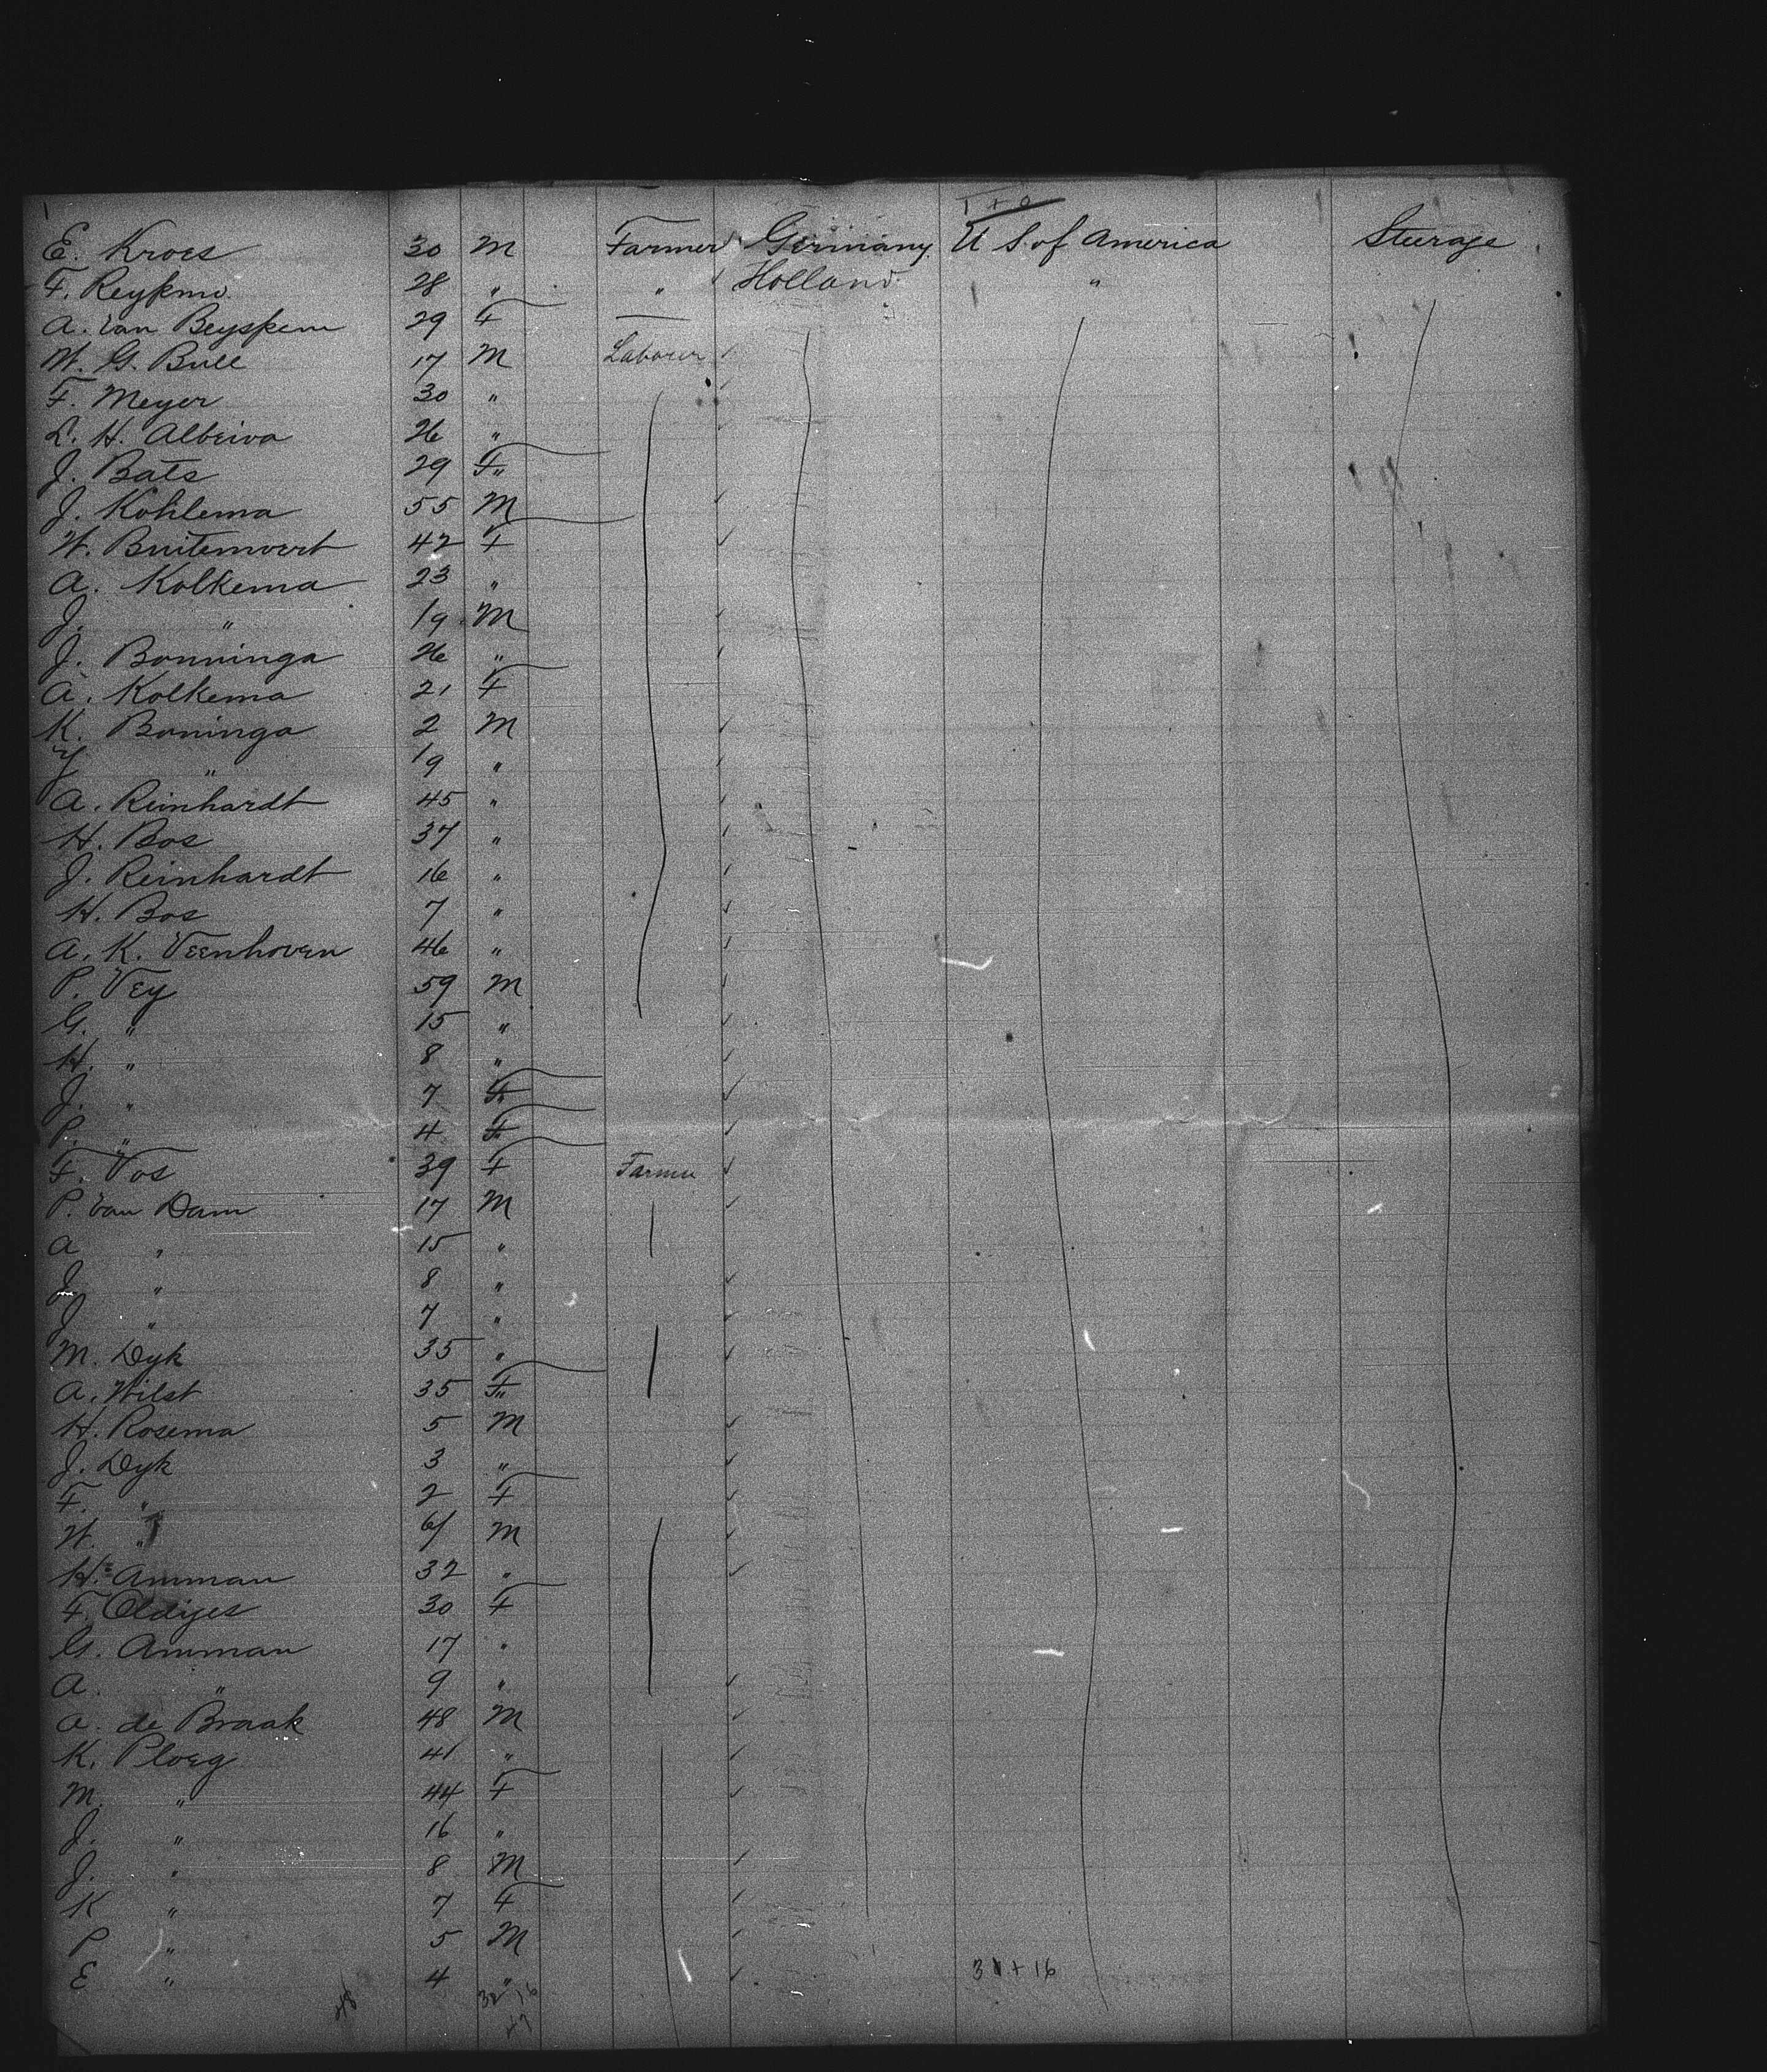 1 + 0
E. Kroes 30 M Farmer Germany U S. of America Steerage
F. Reykmr 28 " " Holland "
A. Van Beyspem 29 F —
W. G. Bull 17 M Laborer
F. Meyer 30 "
L. H. Albeiva 26 "
J. Bats 29 F"
J. Kohlema 55 M
W. Buitenwert 42 F
A. Kolkema 23 "
J. " 19 M
J. Bonninga 26 "
A. Kolkema 21 F
K. Boninga 2 M
Y " 19 "
A. Reinhardt 45 "
H. Bos 37 "
J. Reinhardt 16 "
H. Bos 7 "
A. K. Veenhoven 46 "
P. Vey 59 M
G. " 15 "
H. " 8 "
J. " 7 F"
P. " 4 F"
F. Vos 39 F Farmer
P. Van Dam 17 M
A " 15 "
J " 8 "
J " 7 "
M. Dyk 35 "
A. Wilst 35 F"
H. Rosema 5 M
J. Dyk 3 "
F. " 2 F
W. " 61 M
H. Amman 32 "
F. Oldiges 30 F
G. Amman 17 "
A. " 9 "
A. de Braak 48 M
K. Ploeg 41 "
M. " 44 F
J. " 16 "
J. " 8 M
K " 7 F
P " 5 M
E " 4 " 31 + 16
48 32 16
47